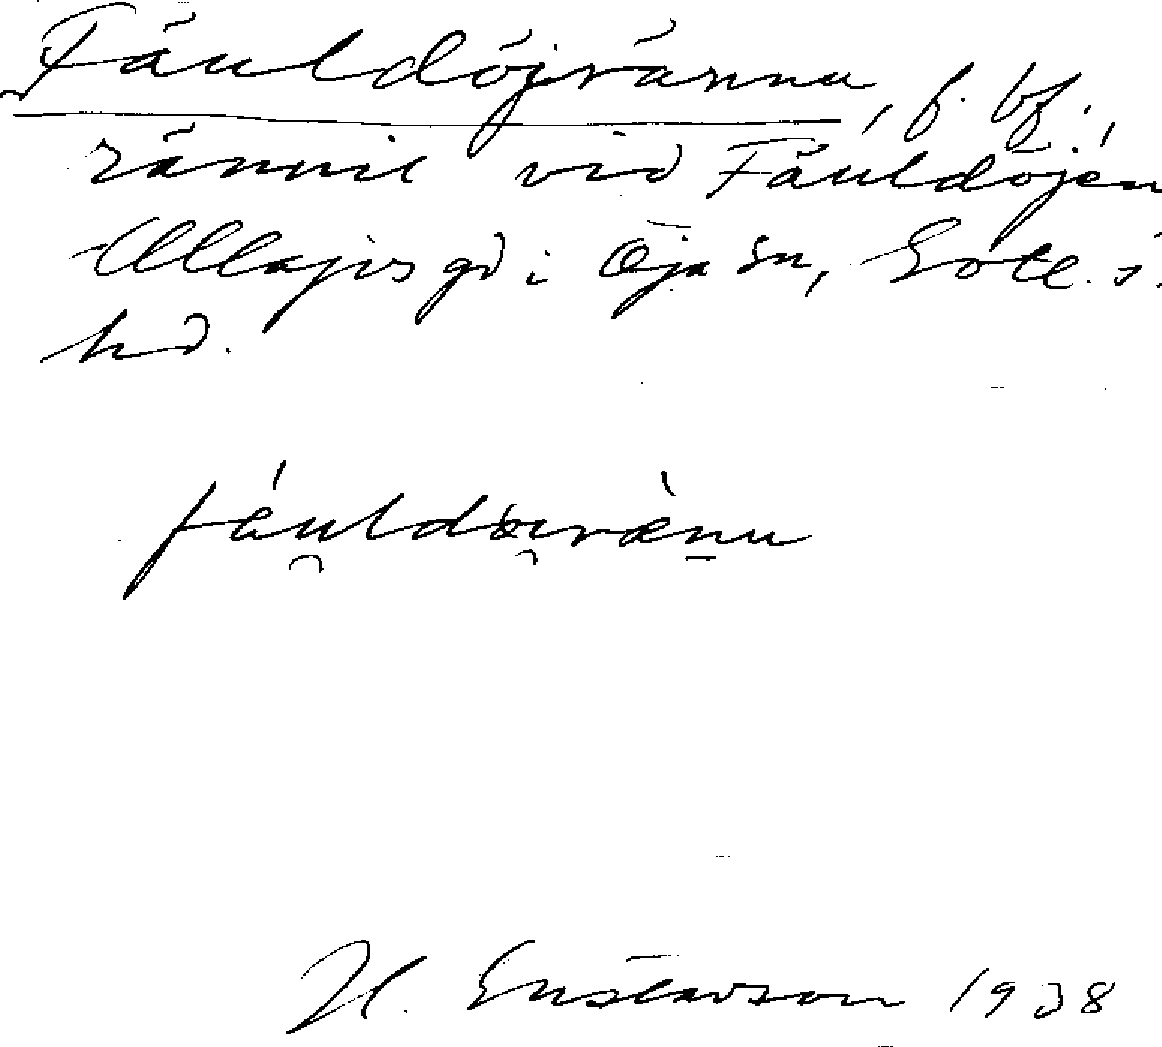 Fäuldöjränna, f. bf.;
rännil vid Fäuldöjen
Ollajvs gd i Öja sn, Gotl. s.
hd.
fáuldo̯i̯ræ̀nu
H. Gustavson 1938